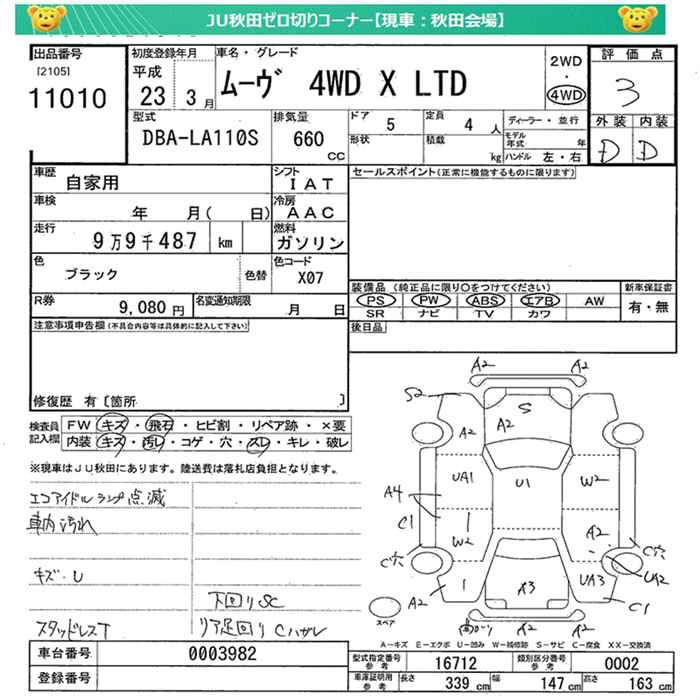 JU秋田ゼロ切りコーナー【現車：秋田会場】
出品番号
[2105]
11010
初度登録年月
平成
23 3月
車名・グレード
ムーヴ 4WD X LTD
2WD
・
4WD
評価点
3
外装 内装
D D
型式
DBA-LA110S
排気量
660
CC
ドア 5
定員 4人
形状
積載 kg
ディーラー・並行
モデル年式 年
ハンドル 左・右
車歴
自家用
シフト
IAT
車検
年 月( 日)
冷房
AAC
走行
9万9千487 km
燃料
ガソリン
色
ブラック
色替
色コード
X07
R券
9,080円
名変通知期限
月 日
セールスポイント(正常に機能するものに限ります)
装備品 (純正品に限り○をつけてください)
PS PW ABS エアB AW
SR ナビ TV カワ
新車保証書
有・無
後日品
注意事項申告欄(不具合内容等は具体的に記入して下さい)
修復歴 有〔箇所 〕
検査員
記入欄
FW キズ・飛石・ヒビ割・リペア跡・×要
内装 キズ・汚レ・コゲ・穴・スレ・キレ・破レ
※現車はJU秋田にあります。陸送費は落札店負担となります。
エコアイドルランプ点滅
車内汚れ
キズ・U
下回りSC
スタッドレスT
リア足回りCハガレ
A2 A2
S2
S
A2
A2
UA1
U1
W2
A4
C1
W2
A2
C穴
C穴
UA2
1
A3
UA3
A2
C1
A2
A2
スペア
A－キズ E－エクボ U－凹み W－補修跡 S－サビ C－腐食 XX－交換済
車台番号
0003982
登録番号
型式指定番号
参考
16712
類別区分番号
参考
0002
車庫証明用
参考
長さ 339cm
幅 147cm
高さ 163cm